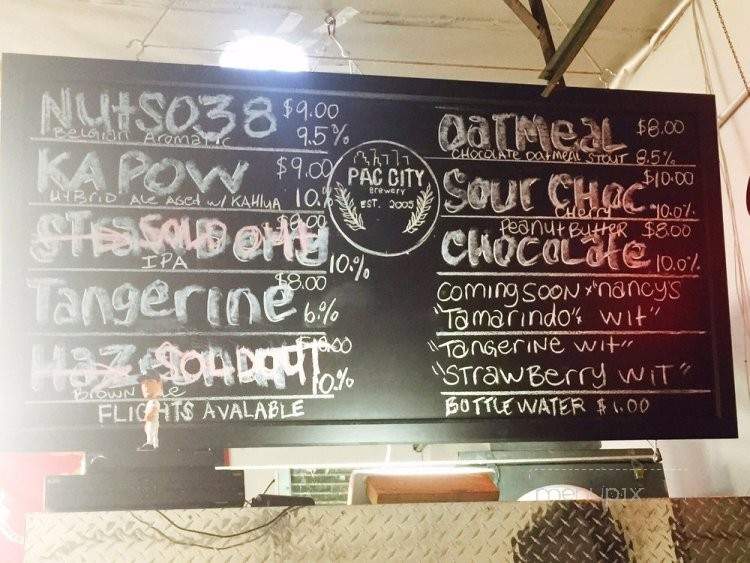 NutSO38 $9.00
Belgian Aromatic 9.5%
KAPOW $9.00
HYBRID ALE AGED W/ KAHLUA 10.%
$9.00
SOLD OUT
IPA 10.%
Tangerine $8.00
6.%
SOLD OUT
BROWN 0.%
FLIGHTS AVALABLE
PAC CITY
Brewery
EST. 2005
OaTMeaL $8.00
CHOCOLATE OATMEAL STOUT 8.5%
$10.00
SOUR CHOC
CHERRY 10.0%
PEANUT BUTTER $8.00
CHOCOLATE 10.0%
COMING SOON "NANCY'S
"TAMARINDO" WIT"
"TANGERINE WIT"
"STRAWBERRY WIT"
BOTTLE WATER $1.00
menupix